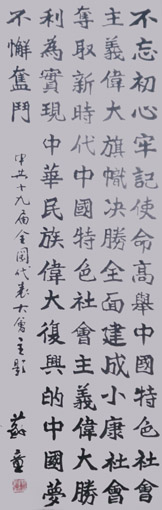 不忘初心牢記使命高舉中國特色社會
主義偉大旗幟决勝全面建成小康社會
奪取新時代中國特色社會主義偉大勝
利為實現中華民族偉大復興的中國夢
不懈奮鬥
中共十九届全國代表大會主題